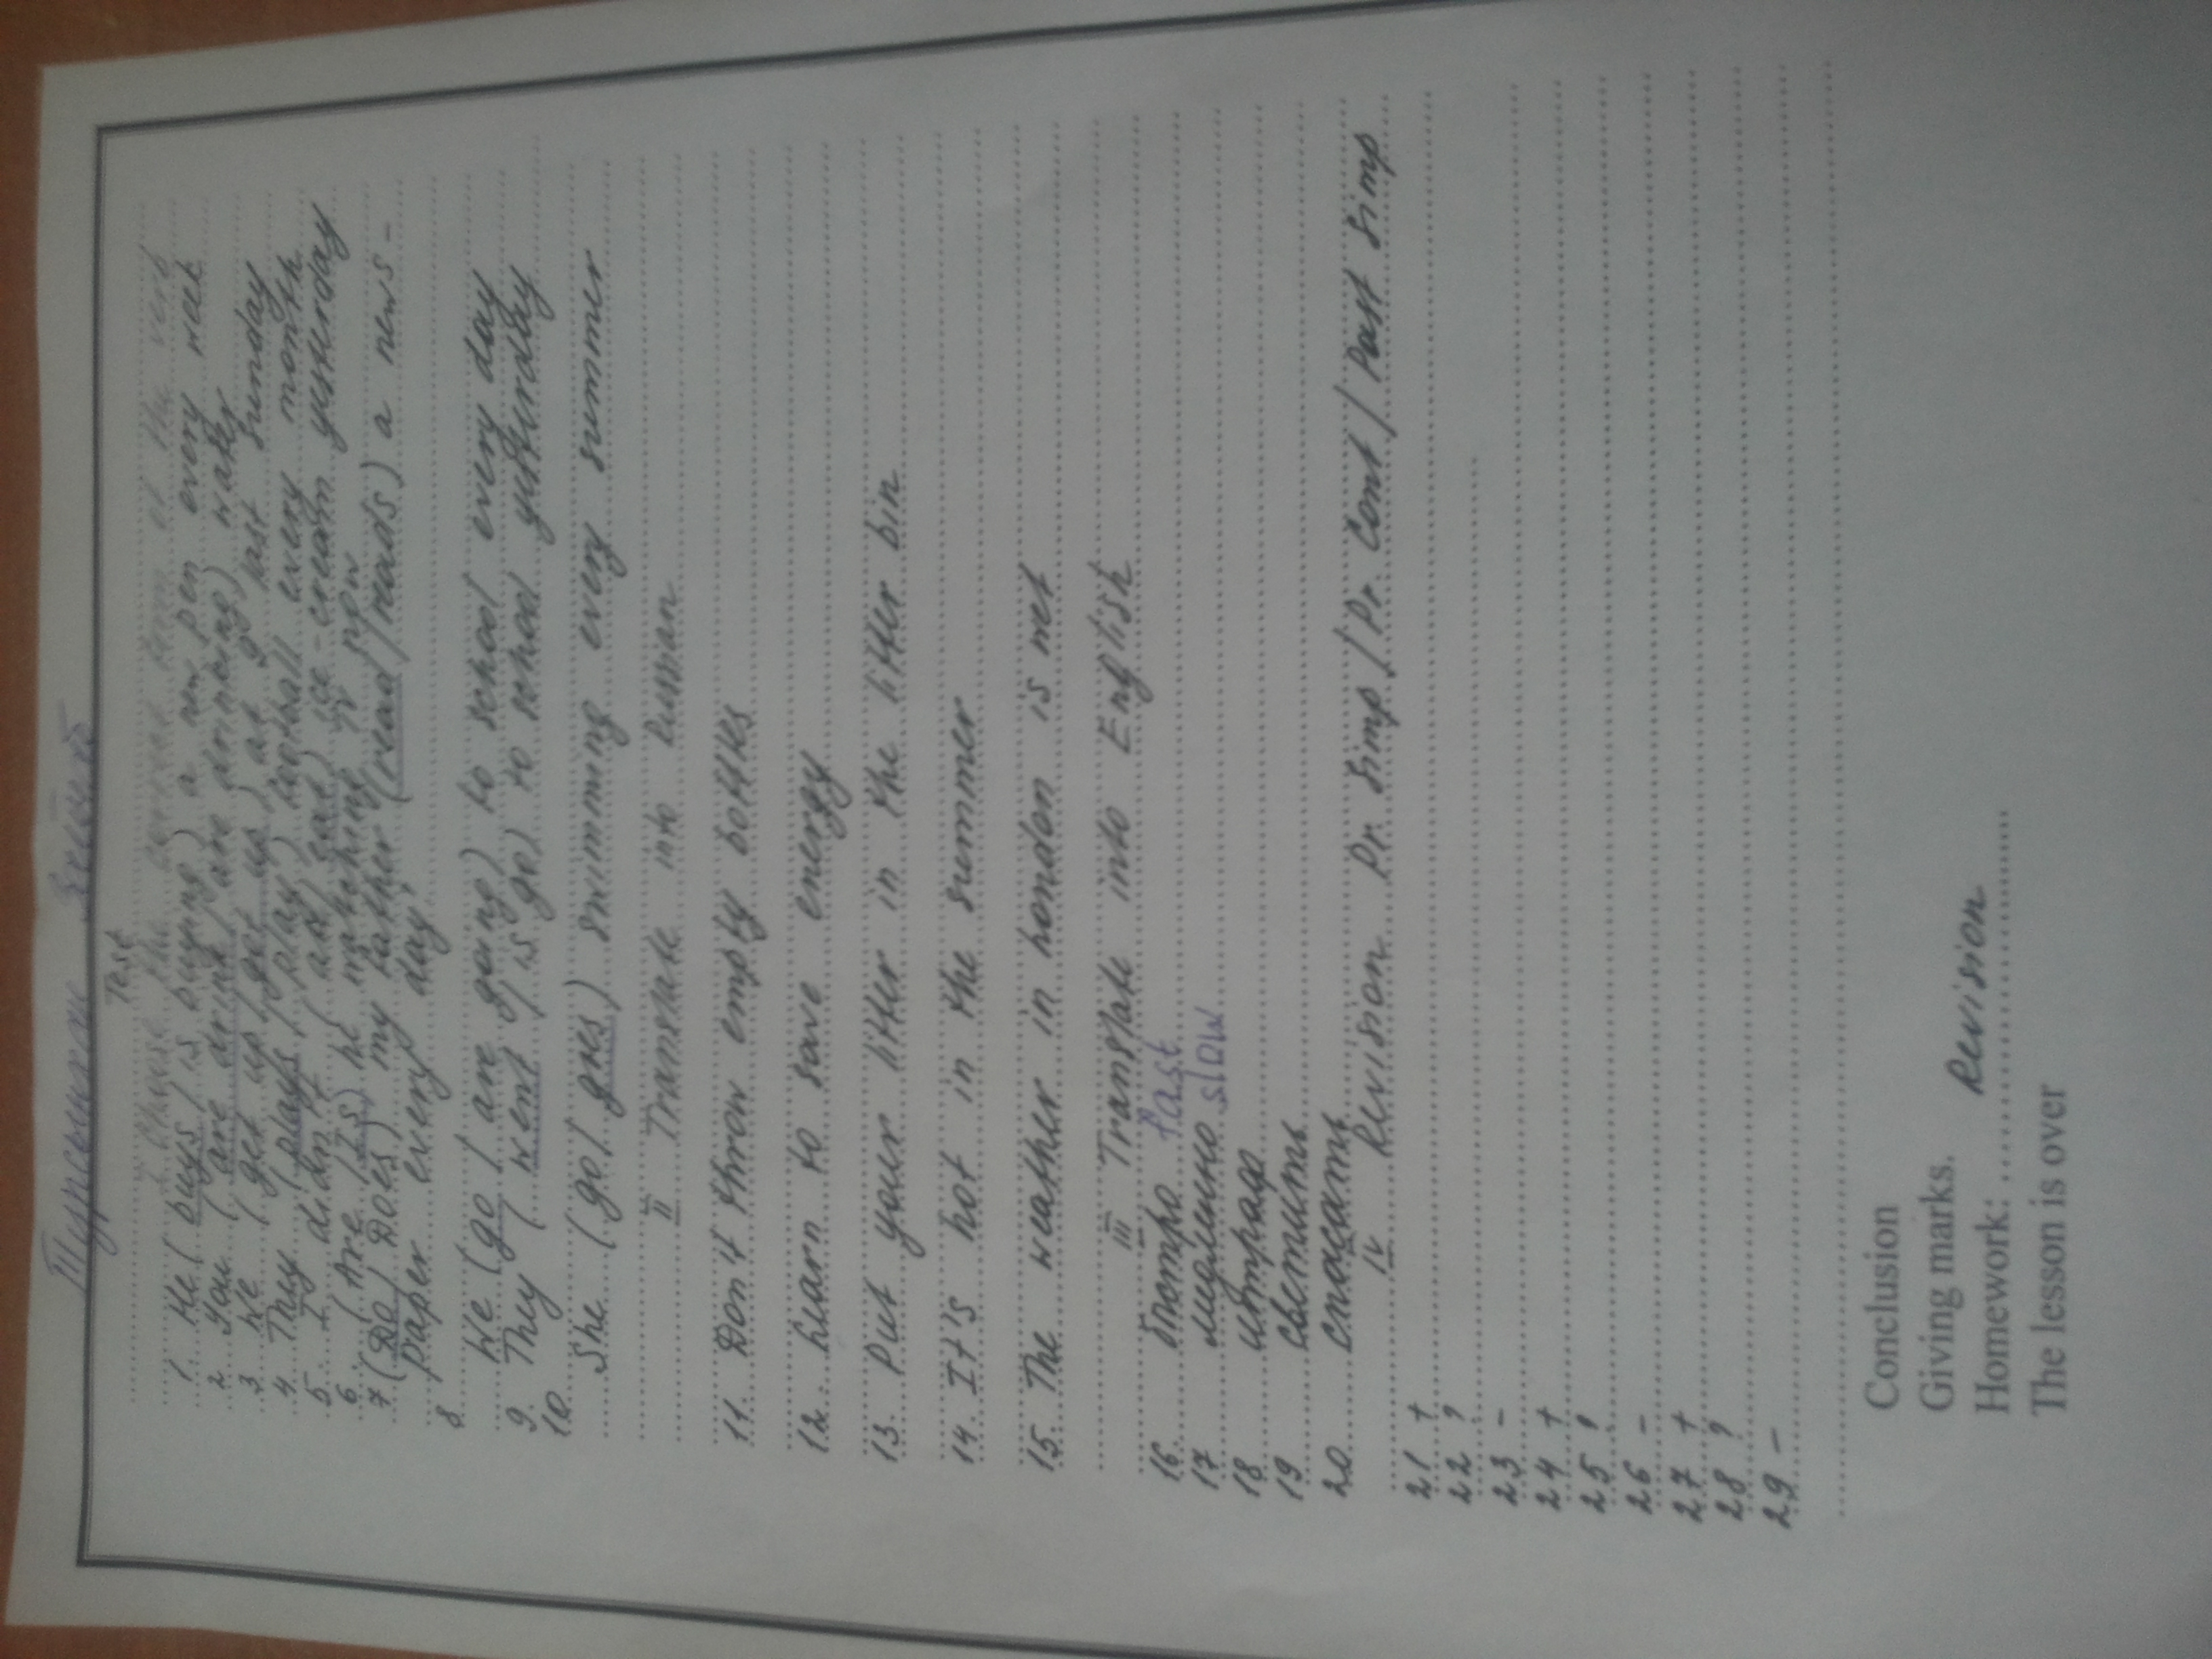 Test
Choose the correct form of the verb
1. He (buys / is buying) a new pen every week
2. You (are drink / are drinking) water
3. We (get up / got up) at 9 last Sunday
4. They (plays / play) football every month
5. I didn't ( / eat) ice-cream yesterday
6. (Are / Is) he watching TV now
7. (Do / Does) my father (read / reads) a news-
paper every day
8
We (go / are going) to school every day
9. They (went / is go) to school yesterday
10.
She (go / goes) swimming every summer
II Translate into Russian
11. Don't throw empty bottles
12. Learn to save energy
13. Put your litter in the litter bin
14. It's hot in the summer
15. The weather in London is wet
III Translate into English
16. быстро fast
17. медленно slow
18. штраф
19. светить
20. спасать
IV Revision Pr. Simp / Pr. Cont / Past Simp
21 +
22 ?
23 -
24 +
25 ?
26 -
27 +
28 ?
29 -
Conclusion
Giving marks.
Homework: Revision
The lesson is over